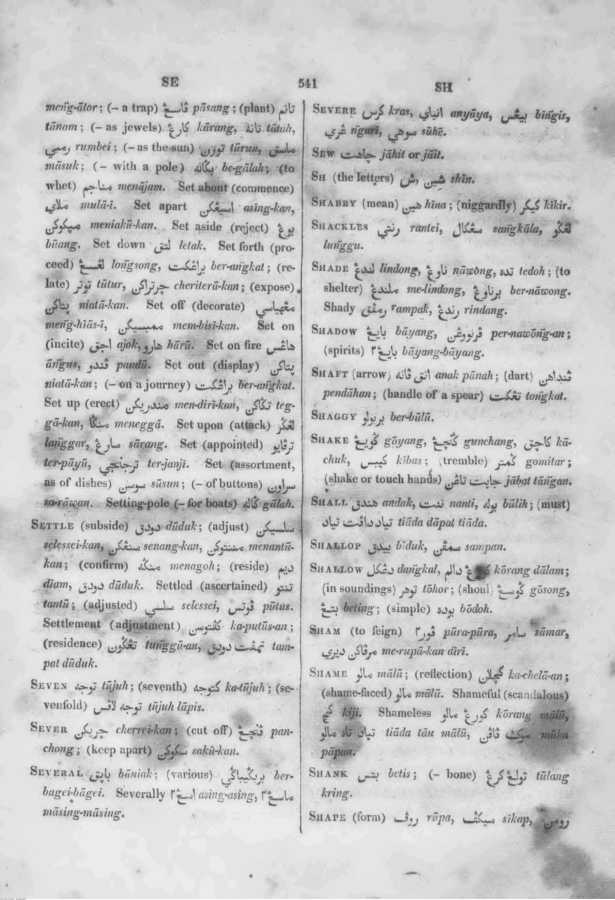 SE 541 SH
meng-ātor; (– a trap) قاسڠ pāsang; (plant) تانم
tānam; (– as jewels) كارڠ kārang, تاته tātah,
رمبي rumbei; (– as the sun) تورن tūrun, ماسق
māsuk; (– with a pole) بݢاله be-gālah; (to
whet) مناجم menājam. Set about (commence)
ملاي mulā-i. Set apart اسيڠكن asing-kan,
meniakū-kan. Set aside (reject) بوڠ
būang. Set down لتق letak. Set forth (pro-
ceed) لڠسڠ longsong, براڠكت ber-angkat; (re-
late) توتر tūtur, چرتراكن cheriterā-kan; (expose)
niatā-kan. Set off (decorate) مڠهياسي
meng-hīās-ī, mem-bisī-kan. Set on
(incite) اجق ajok, هارو hārū. Set on fire هاڠس
āngus, ڤندو pandū. Set out (display)
niatā-kan; (– on a journey) براڠكت ber-angkat.
Set up (erect) منديريكن men-dirī-kan, تݢاكن teg-
gā-kan, منݢݢ meneggā. Set upon (attack) لڠݢر
langgar, سارڠ sārang. Set (appointed) ترڤايو
ter-pāyū, ترجنجي ter-janji. Set (assortment,
as of dishes) سوسن sūsun; (– of buttons) سراون
sa-rāwan. Setting-pole (– for boats) ݢاله gālah.
SETTLE (subside) دودق dūduk; (adjust) سلسيكن
selessei-kan, سنڠكن senang-kan, مننتوكن menantū-
kan; (confirm) منݢه menagoh; (reside) ديم
diam, دودق dūduk. Settled (ascertained) تنتو
tantū; (adjusted) سلسي selessei, ڤوتس pūtus.
Settlement (adjustment) كڤتوسن ka-putūs-an;
(residence) تڠݢون tunggū-an, تمڤت دودق tam-
pat dūduk.
SEVEN توجه tūjuh; (seventh) كتوجه ka-tūjuh; (se-
venfold) توجه لاڤس tūjuh lāpis.
SEVER چريكن cherrei-kan; (cut off) ڤنچڠ pan-
chong; (keep apart) سكوكن sakū-kan.
SEVERAL باڽق bāniak; (various) بربݢيباݢي ber-
bagei-bāgei. Severally اسڠ٢ asing-asing, ماسڠ٢
māsing-māsing.
SEVERE كرس kras, انياي anyāya, بيڠس bingis,
ڠري ngurī, سوهي sūhē.
SEW جاهت jāhit or jāit.
SH (the letters) شين ,ش shīn.
SHABBY (mean) هين hīna; (niggardly) كيكر kīkir.
SHACKLES رنتي rantei, سڠكال sangkāla, لڠݢو
lunggu.
SHADE لندڠ lindong, ناوڠ nāwong, تده tedoh; (to
shelter) ملندڠ me-lindong, برناوڠ ber-nāwong.
Shady رمڤق rampak, رندڠ rindang.
SHADOW بايڠ bāyang, ڤرناوڠن per-nawōng-an;
(spirits) بايڠ٢ bāyang-bāyang.
SHAFT (arrow) انق ڤانه anak pānah; (dart) ڤنداهن
pendāhan; (handle of a spear) تڠكت tongkat.
SHAGGY بربولو ber-būlū.
SHAKE ݢويڠ gōyang, ݢنچڠ gunchang, كاچق kā-
chuk, كيبس kības; (tremble) ݢمتر gomitar;
(shake or touch hands) جابت تاڠن jābat tāngan.
SHALL هندق andak, ننت nanti, بوله būlih; (must)
تياد داڤت تياد tiāda dāpat tiāda.
SHALLOP بيدق bīduk, سمڤن sampan.
SHALLOW دڠكل dangkal, كورڠ دالم kōrang dālam;
(in soundings) توهر tōhor; (shoal) ݢوسڠ gōsong,
بتڠ beting; (simple) بوده bōdoh.
SHAM (to feign) ڤور٢ pūra-pūra, سامر sāmar,
مروڤاكن ديري me-rupā-kan dīrī.
SHAME مالو mālū; (reflection) كچلان ka-chelā-an;
(shame-faced) مالو mālū. Shameful (scandalous)
كج kījī. Shameless كورڠ مالو kōrang mālū,
تياد تاه مالو tiāda tāu mālū, موك ڤاڤن mūka
pāpan.
SHANK بتس betis; (– bone) تولڠ كرڠ tūlang
kring.
SHAPE (form) روڤ rūpa, سيكڤ sīkap, رومن